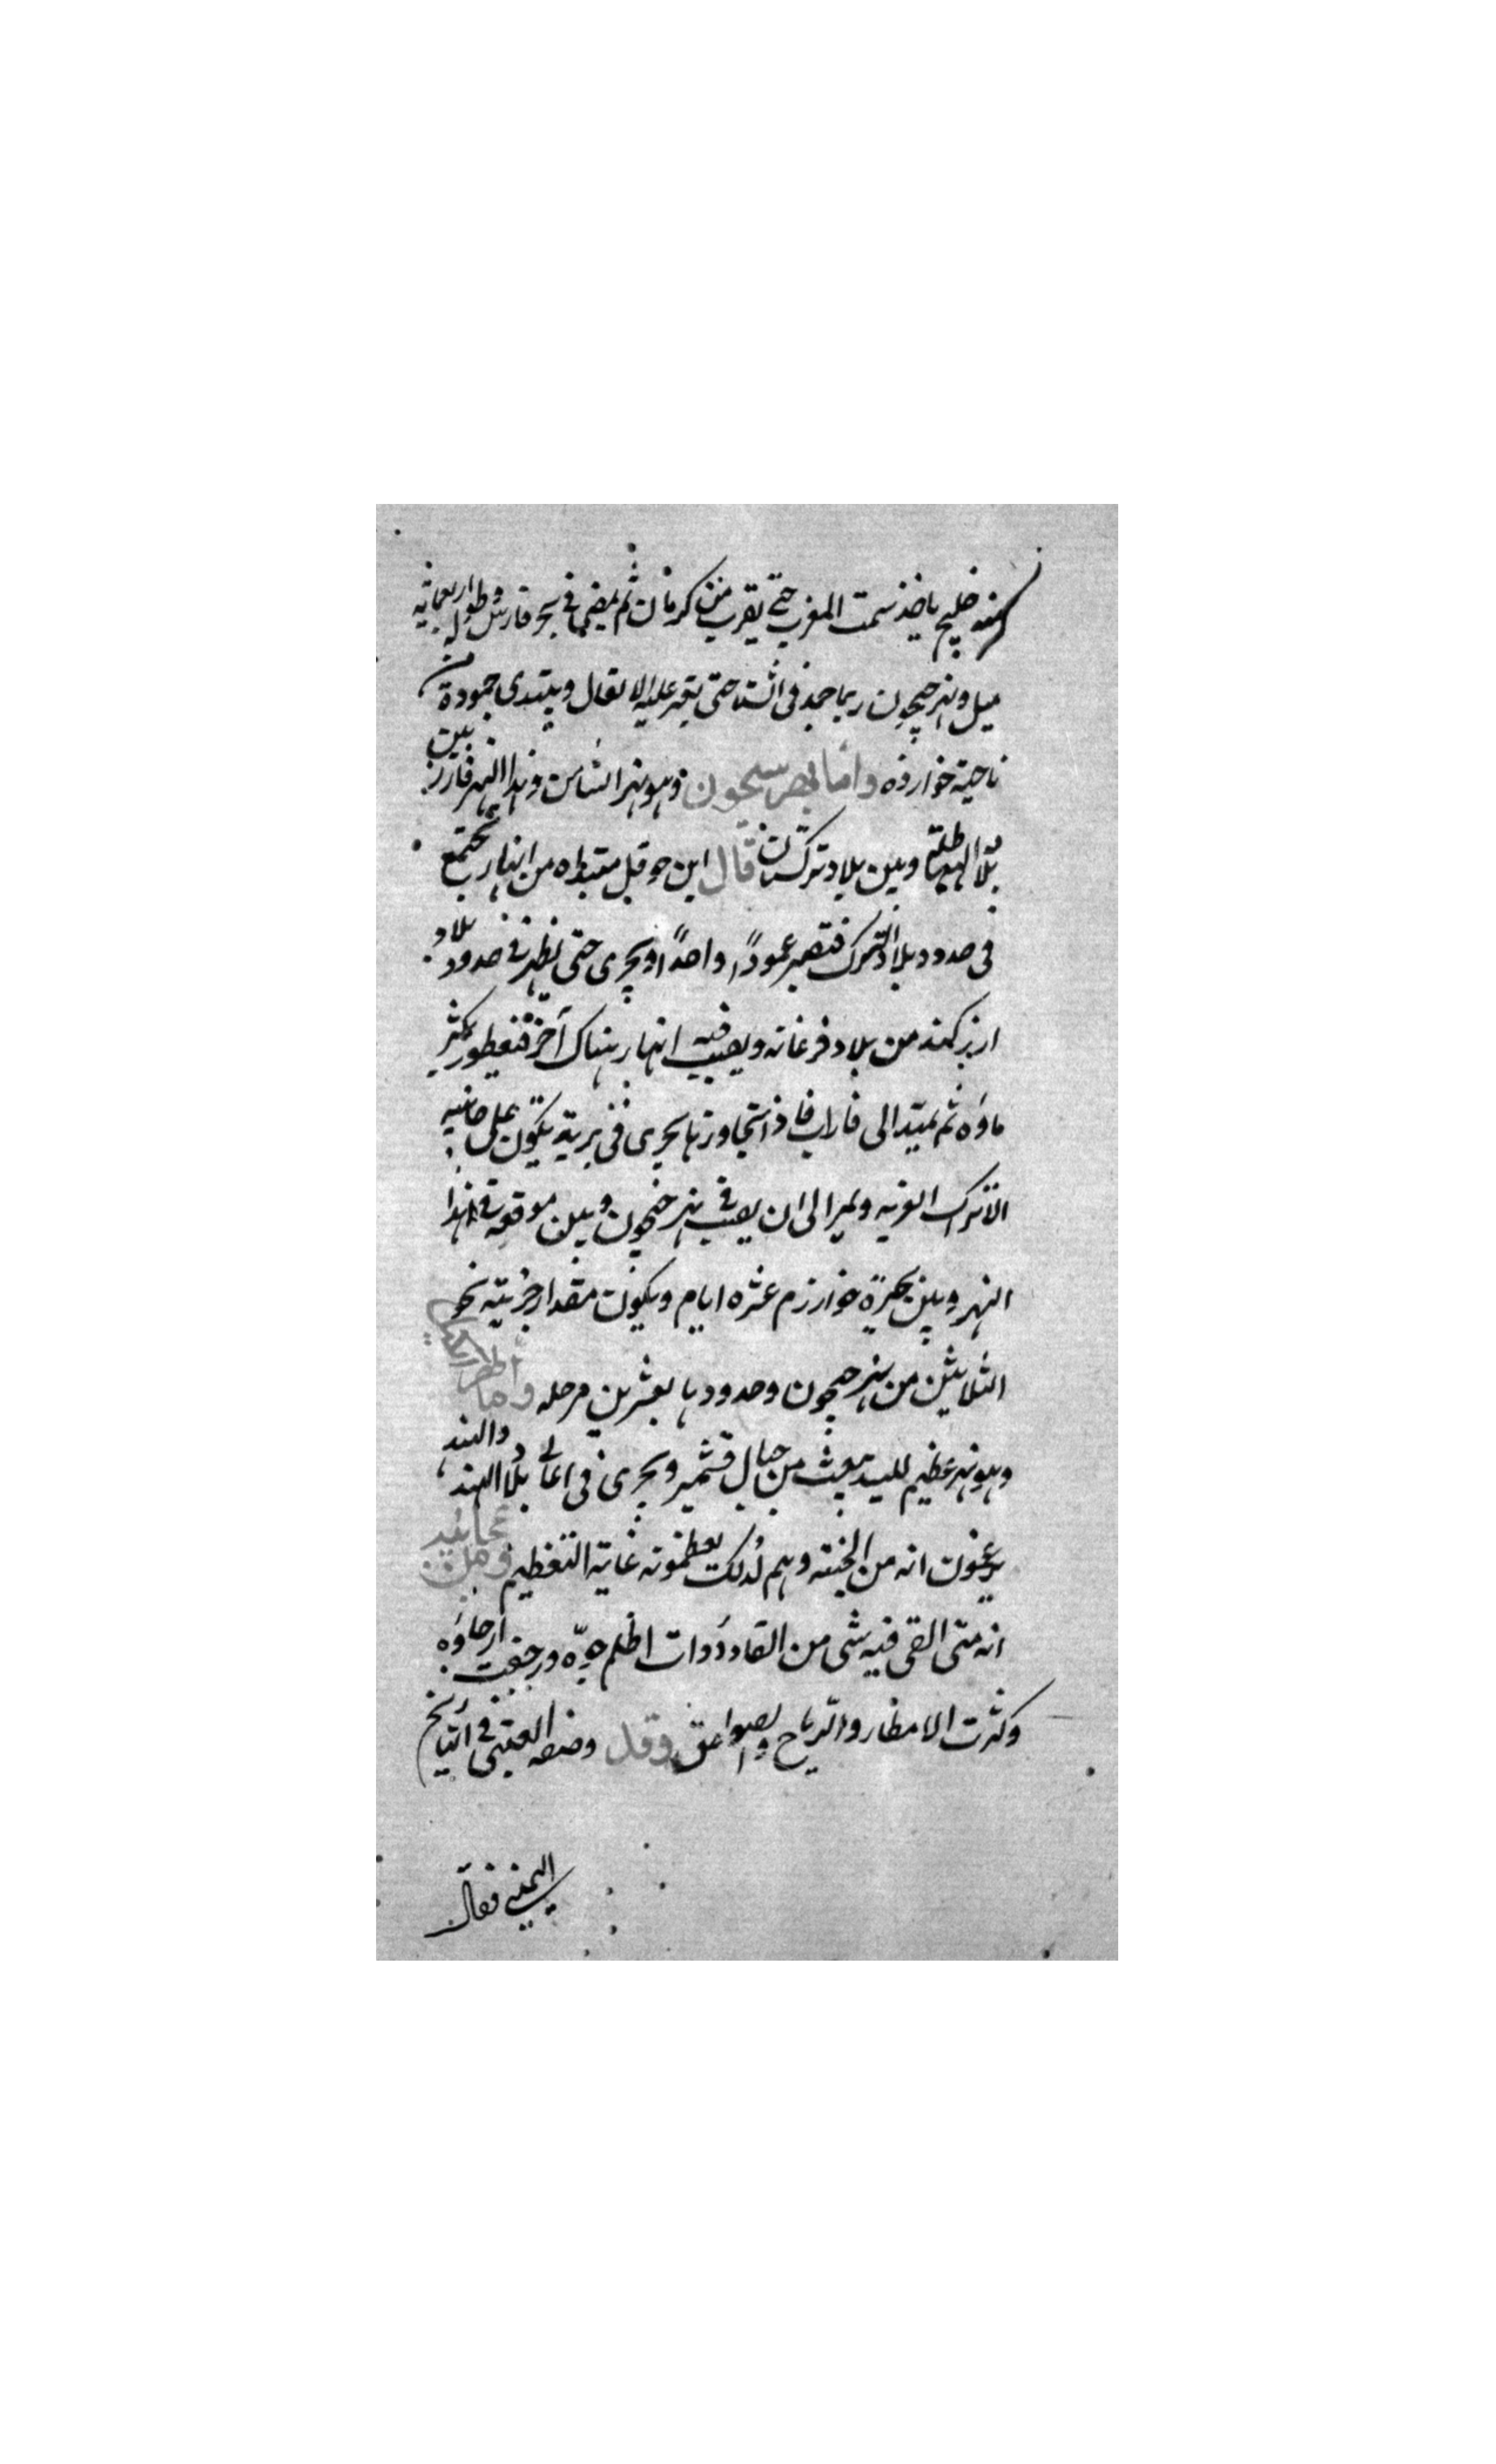 منه خليج ياخذ سمت المغرب حتى يقرب من كرمان ثم يمضى فى بحر فارس وطوله اربعمائة
ميل ونهر جيحون ربما جمد فى الشتا حتى تعبر عليه الاثقال ويبتدى جموده من
ناحية خوارزم واما نهر سيحون وهو نهر الشاش وهذا النهر فارز بين
بلاد الهياطلة وبين بلاد تركستان قال ابن حوقل مبتداه من انهار تجتمع
فى حدود بلاد الترك فتصير عمودًا واحدًا ويجرى حتى يظهر فى حدود بلاد
اوزكند من بلاد فرغانه ويصب فيه انهار هناك آخر فتعظم ويكثر
ماؤه ثم يمتد الى فاراب فاذا تجاوزها يجرى فى برية تكون على جانبيه
الاتراك الغزيه ويمر الى ان يصب فى نهر جيحون وبين موقعه فى هذا
النهر وبين بحيرة خوارزم عشره ايام ويكون مقدار جريته نحو
الثلاثين من نهر جيحون وحدودها بعشرين مرحله واما نهر
وهو نهر عظيم للسند يبعث من جبال قشمير ويجرى فى اعالى بلاد الهند والهند
يزعمون انه من الجنة وهم لذلك يعظمونه غاية التعظيم ومن عجائبه
انه متى القى فيه شى من القاذورات اظلم جوّه ورجفت ارجاؤه
وكثرت الامطار والرياح والصواعق وقد وصفه العتبى فى التاريخ
اليمينى فقال